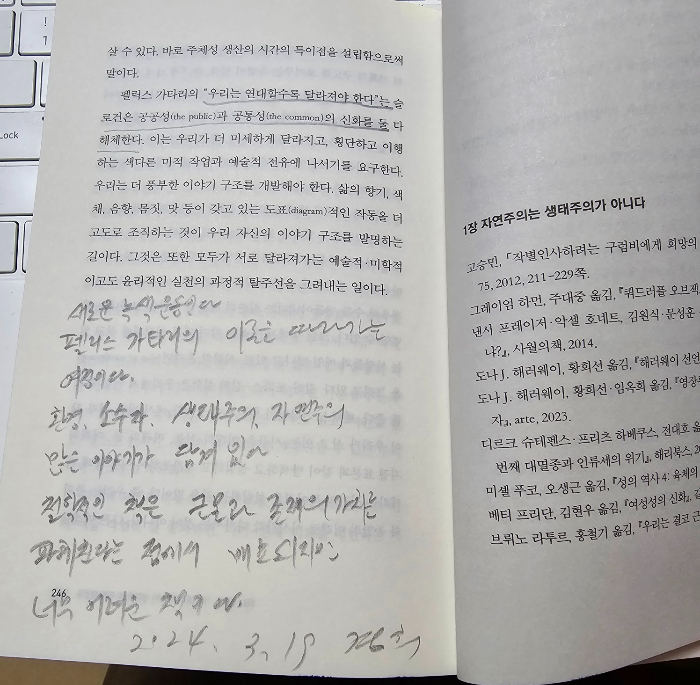 살 수 있다. 바로 주체성 생산의 시간의 특이점을 설립함으로써
말이다.
펠릭스 가타리의 "우리는 연대할수록 달라져야 한다"는 슬
로건은 공공성(the public)과 공통성(the common)의 신화를 둘 다
해체한다. 이는 우리가 더 미세하게 달라지고, 횡단하고 이행
하는 색다른 미적 작업과 예술적 전유에 나서기를 요구한다.
우리는 더 풍부한 이야기 구조를 개발해야 한다. 삶의 향기, 색
채, 음향, 몸짓, 맛 등이 갖고 있는 도표(diagram)적인 작동을 더
고도로 조직하는 것이 우리 자신의 이야기 구조를 발명하는
길이다. 그것은 또한 모두가 서로 달라져가는 예술적·미학적
이고도 윤리적인 실천의 과정적 탈주선을 그려내는 일이다.
새로운 녹색 운동이다
펠릭스 가타리의 이론을 따라가는
여정이다.
환경, 소수자, 생태주의, 자연주의
많은 이야기가 담겨 있다.
철학적인 책은 근본과 존재의 가치를
파헤친다는 점에서 매혹되지만
너무 어려운 책이다.
246
2024. 3. 19
1장 자연주의는 생태주의가 아니다
고승민, 「작별인사하려는 구럼비에게 희망의
75, 2012, 211-229쪽.
그레이엄 하먼, 주대중 옮김, 『쿼드러플 오브젝
낸시 프레이저·악셀 호네트, 김원식·문성훈
냐?』, 사월의책, 2014.
도나 J. 해러웨이, 황희선 옮김, 『해러웨이 선언
도나 J. 해러웨이, 황희선·임옥희 옮김, 『영장
자』, arte, 2023.
디르크 슈테펜스·프리츠 하베쿠스, 전대호 옮
번째 대멸종과 인류세의 위기』, 해리북스, 2
미셸 푸코, 오생근 옮김, 『성의 역사 4: 육체의
베티 프리단, 김현우 옮김, 『여성성의 신화』, 갈
브뤼노 라투르, 홍철기 옮김, 『우리는 결코 근